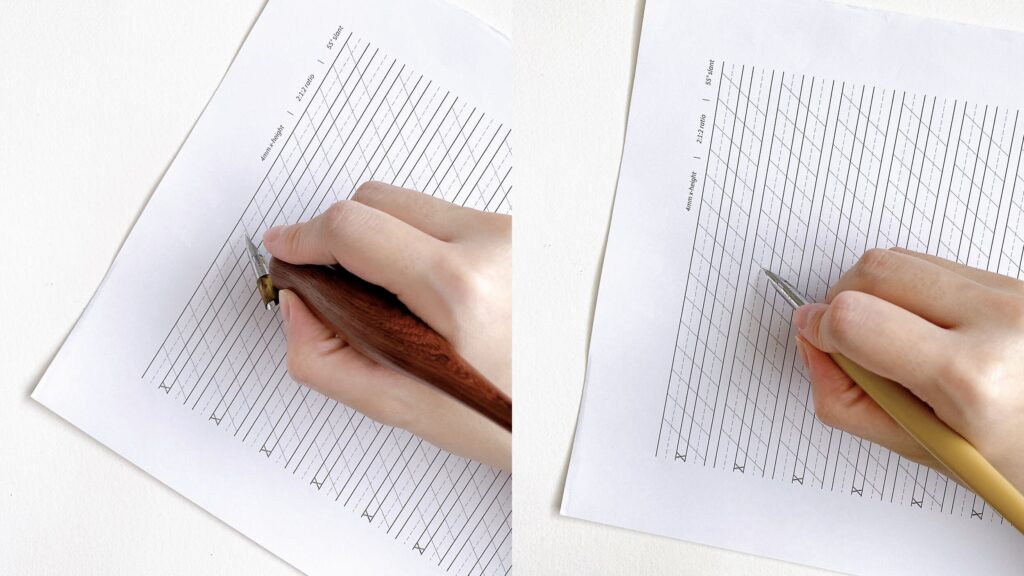 4mm x-height | 2:1:2 ratio | 55° slant
X
X
X
X
X
X
4mm x-height | 2:1:2 ratio | 55° slant
X
X
X
X
X
X